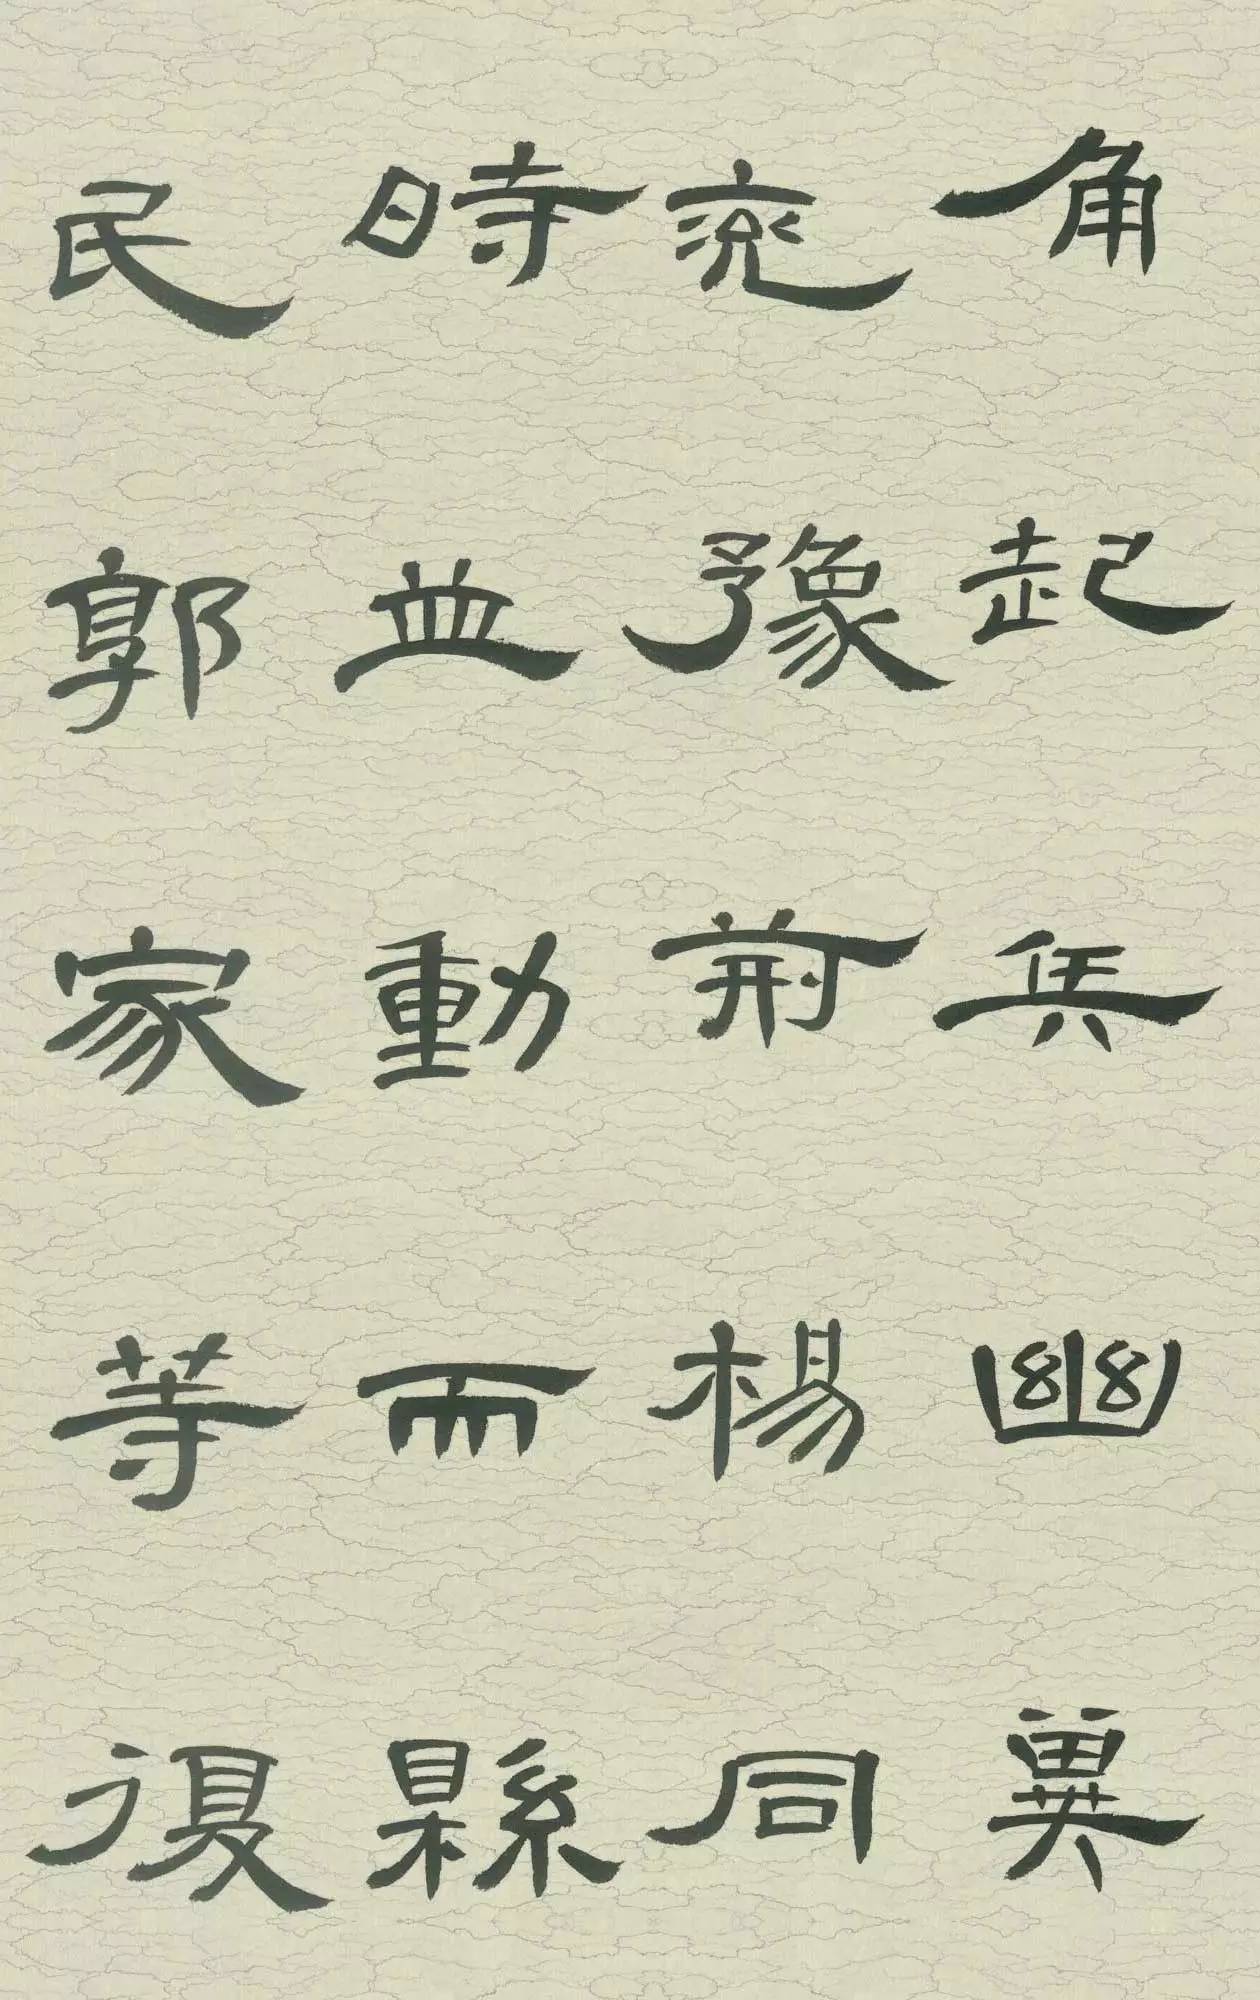 角起兵幽冀
兖豫荊楊同
時並動而縣
民郭家等復